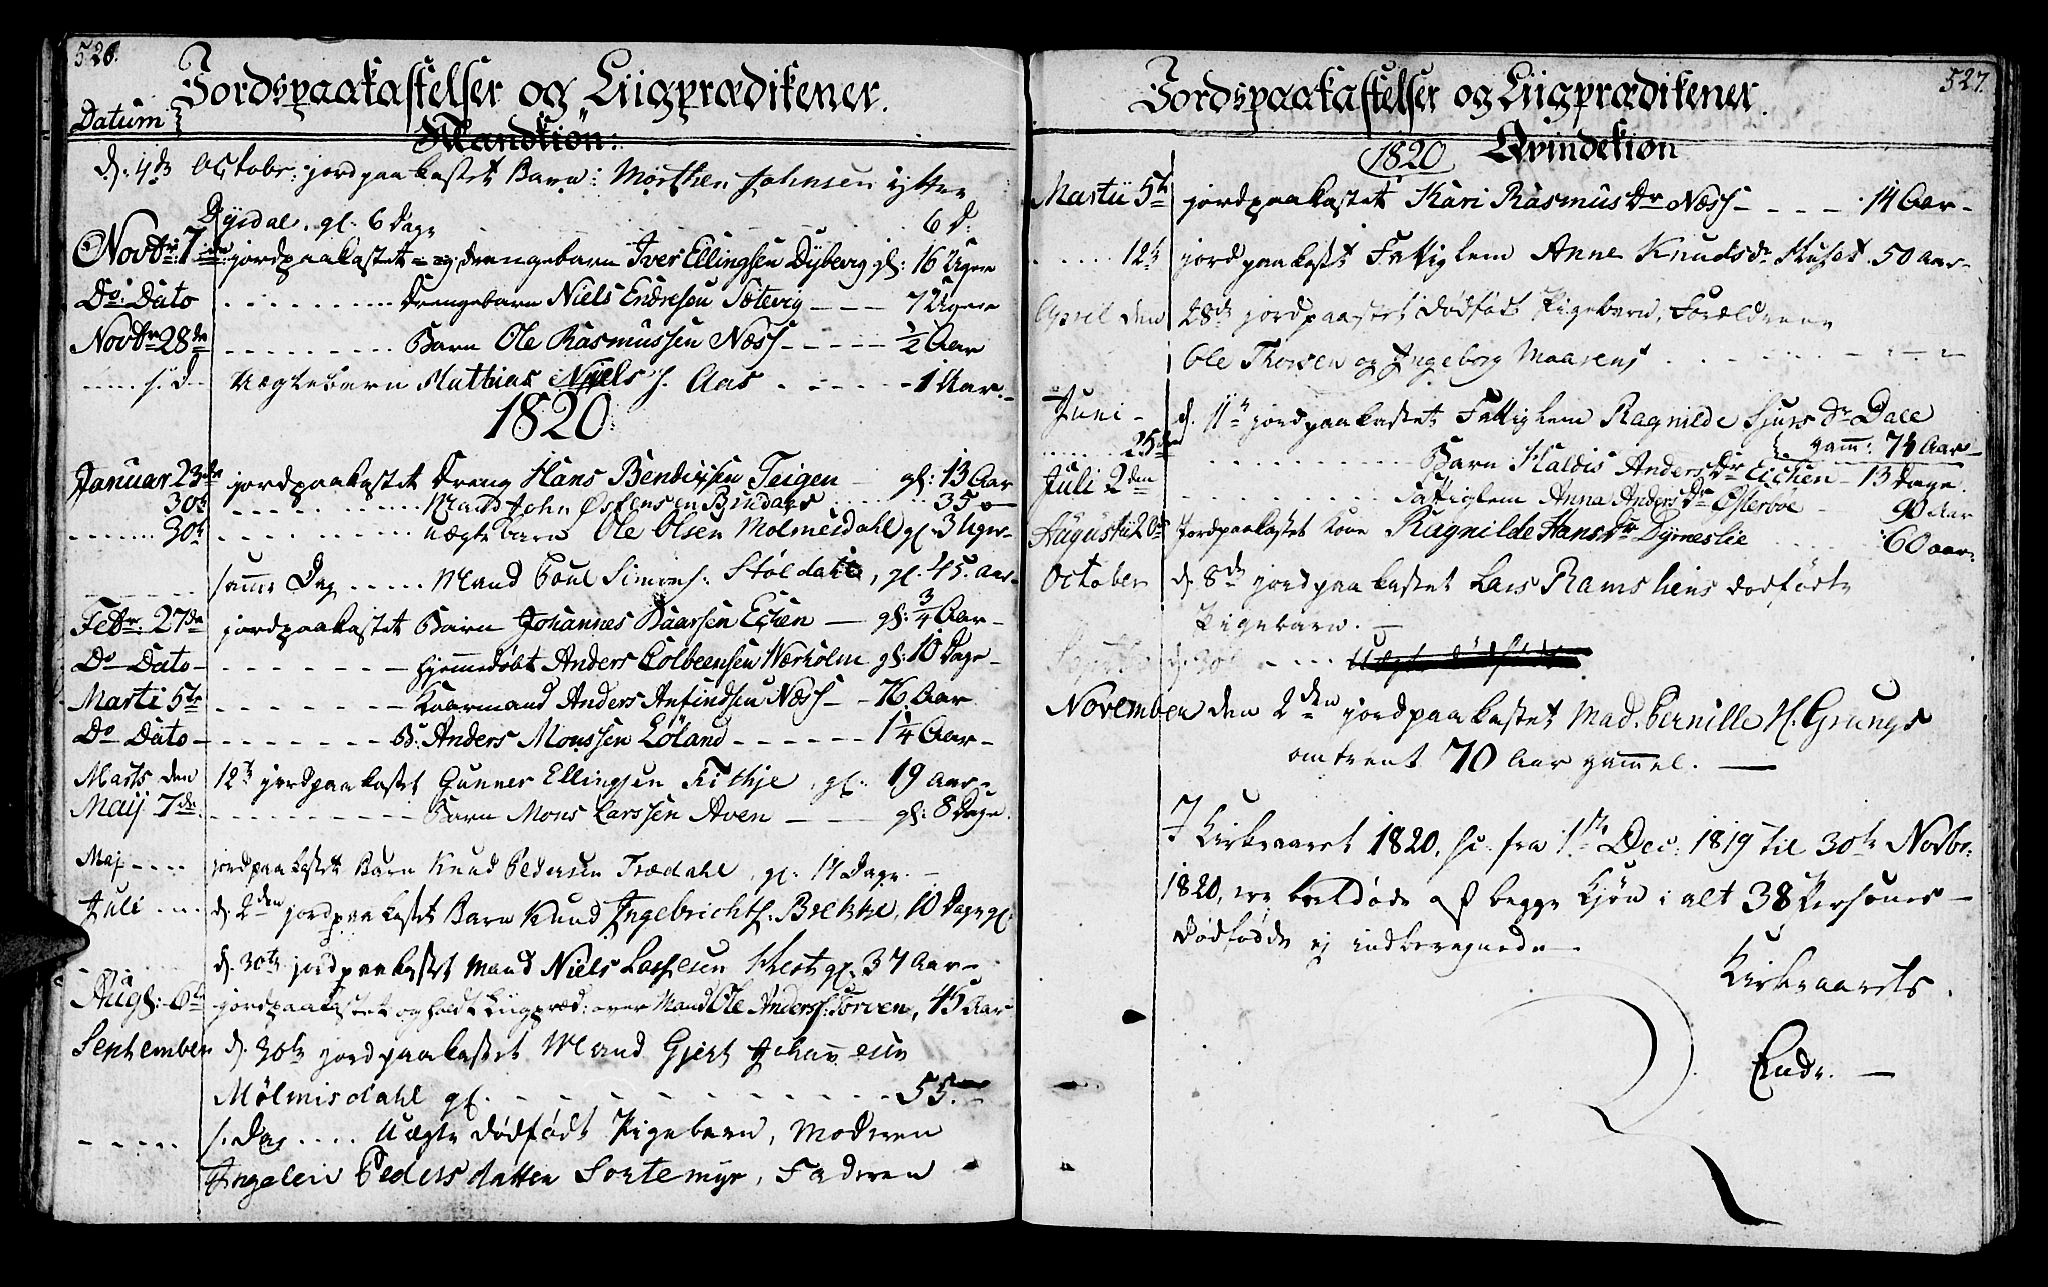 526.
Jordspaakastelser og Liigprædikener.
Datum
Mandkiøn:
d: 4de Octobr: jordpaakastet Barn: Morthen Johnsen ytter
Dysdal, gl. 6 Dage 6 D:
Novbr: 7de jordpaakastet drengebarn Iver Ellingsen Dybevig gl: 16 Uger
Do: Dato drengebarn Niels Endresen Totevig 7 Uger
Novbr 28de Barn Ole Rasmussen Næss ½ Aar
s. D Uægtebarn Mathias Niels s. Aas 1 Aar.
1820
Januar 23de jordpaakastet Dreng Hans Bendixsen Teigen gl: 13 Aar
30te Mand John Østensen Brudaas 35
30te uægte barn Ole Olsen Molmeisdahl gl. 3 Uger
samme Dag Mand Poul Simons: Støldahl, gl. 45. Aar
Febr. 27de jordpaakastet Barn Johannes Baarsen Echen gl: ¾ Aar
Do Dato hjemmedøbt Anders Colbeensen Værholm gl: 10 Dage
Marti 5te Kaarmand Anders Anfindsen Næss 76 Aar
Do Dato B: Anders Monssen Løland 1¼ Aar
Marts den 12te jordpaakastet Gunner Ellingsen Fithje, gl. 19 Aar
Maij 7de Barn Mons Larssen Aven gl: 8 Dage.
Maj jordpaakastet Barn Knud Pedersen Trædahl, gl. 14 Dage.
Juli d. 2den jordpaakastet Barn Knud Ingebrichts: Brekke, 10 Dage gl.
d. 30te jordpaakastet Mand Niels Lassesen Hest gl. 37 Aar
Augs: 6te jordpaakastet og holdt Liigpræd: over Mand Ole Anderss: Torven, 45 Aar
September d. 30te jordpaakastet Mand Gjert Johannesen
Mølmisdahl gl. 55.
s. Dag Uægte dødfødt Pigebarn, Moderen
Ingeleiv Pedersdatter Sortemyr, Faderen
527.
Jordspaakastelser og Liigprædikener.
1820 Qvindekiøn
Martii 5te jordpaakastet Kari Rasmus Dr Næss 14 Aar
12te jordpaakastet Fattiglem Anne Knudsdr Huset 50 Aar
April den 28de jordpaastet dødfødt Pigebarn, Forældrene
Ole Thorsen og Ingeborg Maarens
Juni d. 11te jordpaakastet Fattiglem Ragnilde Sjurs Dr Dale
gamm: 74 Aar
25de Barn Haldis Anders Dr Eichen 13 Dage.
Juli 2den Fattiglem Anna Anders Dr Østerbøe 90 Aar
Augustii 20de Jordpaakastet Kone Ragnilde Hans Dr Dyrneslie 60 aar
October d. 8de jordpaakastet Lars Ramsliens dødfødte
Pigebarn.
Septbr d. 30te Uægte dødfødt
November den 2den jordpaakastet Mad. Pernille H. Grungs
omtrent 70 Aar gammel.
I Kirkeaaret 1820, sc: fra 1ste Dec: 1819 til 30te Novbr:
1820, ere bortdøde af begge Kjøn i alt 38 Personer
Dødfødde ej indberegnede
Kirkeaarets
Ende.